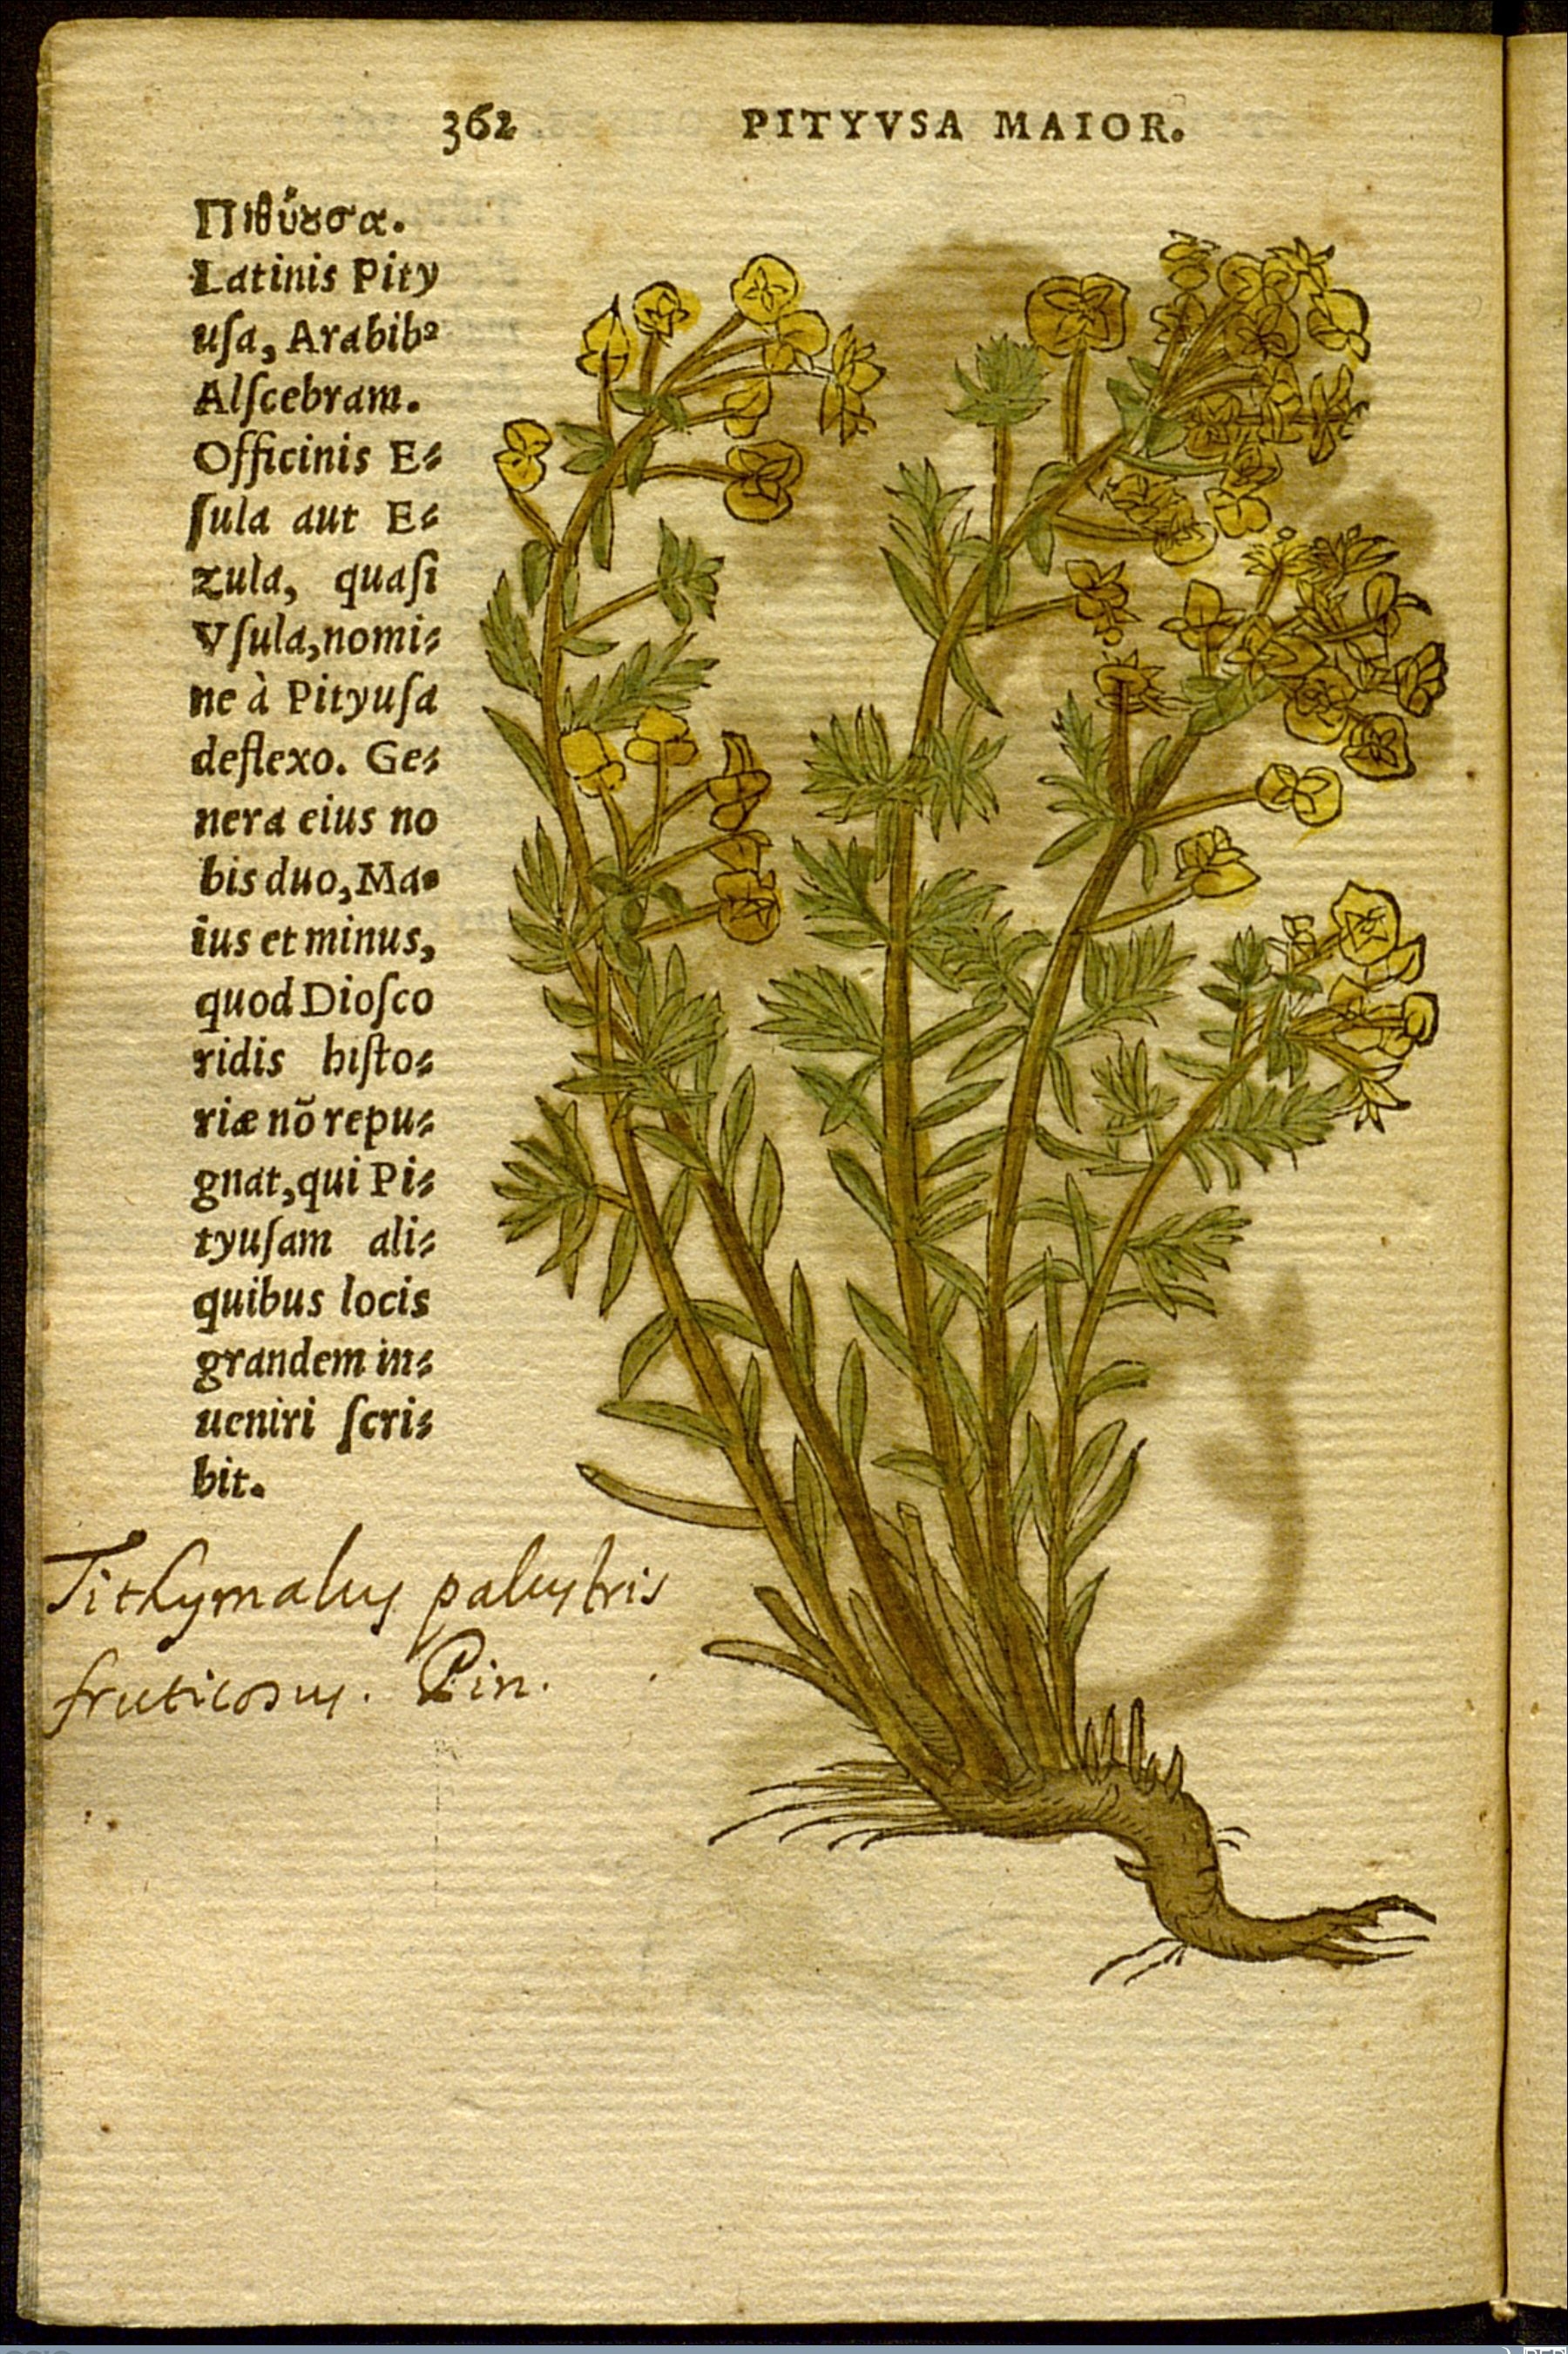 362 PITYVSA MAIOR.
Πιθύȣσα.
Latinis Pity
uſa, Arabibꝰ
Alſcebram.
Officinis E⸗
ſula aut E⸗
zula, quaſi
Vſula, nomi⸗
ne à Pityuſa
deflexo. Ge⸗
nera eius no
bis duo, Ma⸗
ius et minus,
quod Dioſco
ridis hiſto⸗
riæ nõ repu⸗
gnat, qui Pi⸗
tyuſam ali⸗
quibus locis
grandem in⸗
ueniri ſcri⸗
bit.
Tithymalus palustris
fruticosus. Pin.